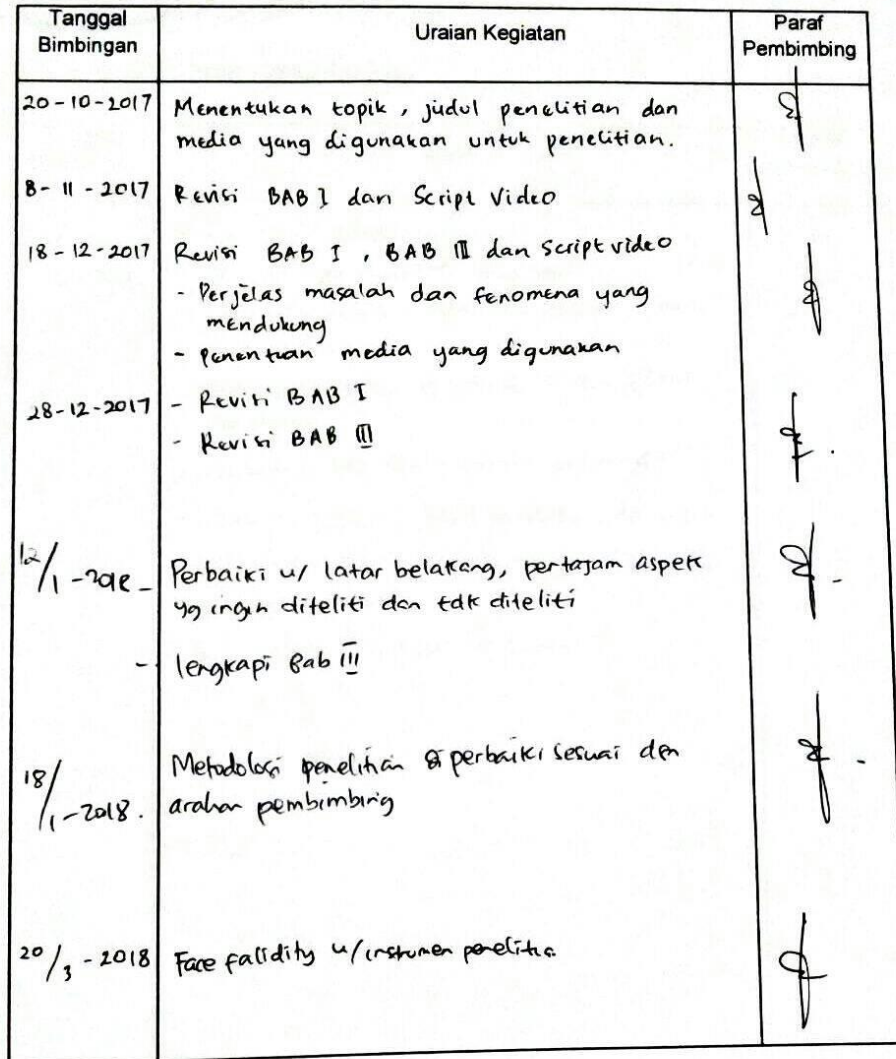 Tanggal Bimbingan
Uraian Kegiatan
Paraf Pembimbing
20-10-2017 Menentukan topik, judul penelitian dan
media yang digunakan untuk penelitian.
8-11-2017 Revisi BAB I dan Script Video
18-12-2017 Revisi BAB I, BAB III dan Script video
- Perjelas masalah dan fenomena yang
mendukung
- Penentuan media yang digunakan
28-12-2017 - Revisi BAB I
- Revisi BAB III
12/1-2018 - Perbaiki u/ latar belakang, pertajam aspek
yg ingin diteliti dan tdk diteliti
- lengkapi Bab III
18/1-2018. Metodologi penelitian diperbaiki sesuai den
arahan pembimbing
20/3-2018 Face falidity u/ instrumen penelitia